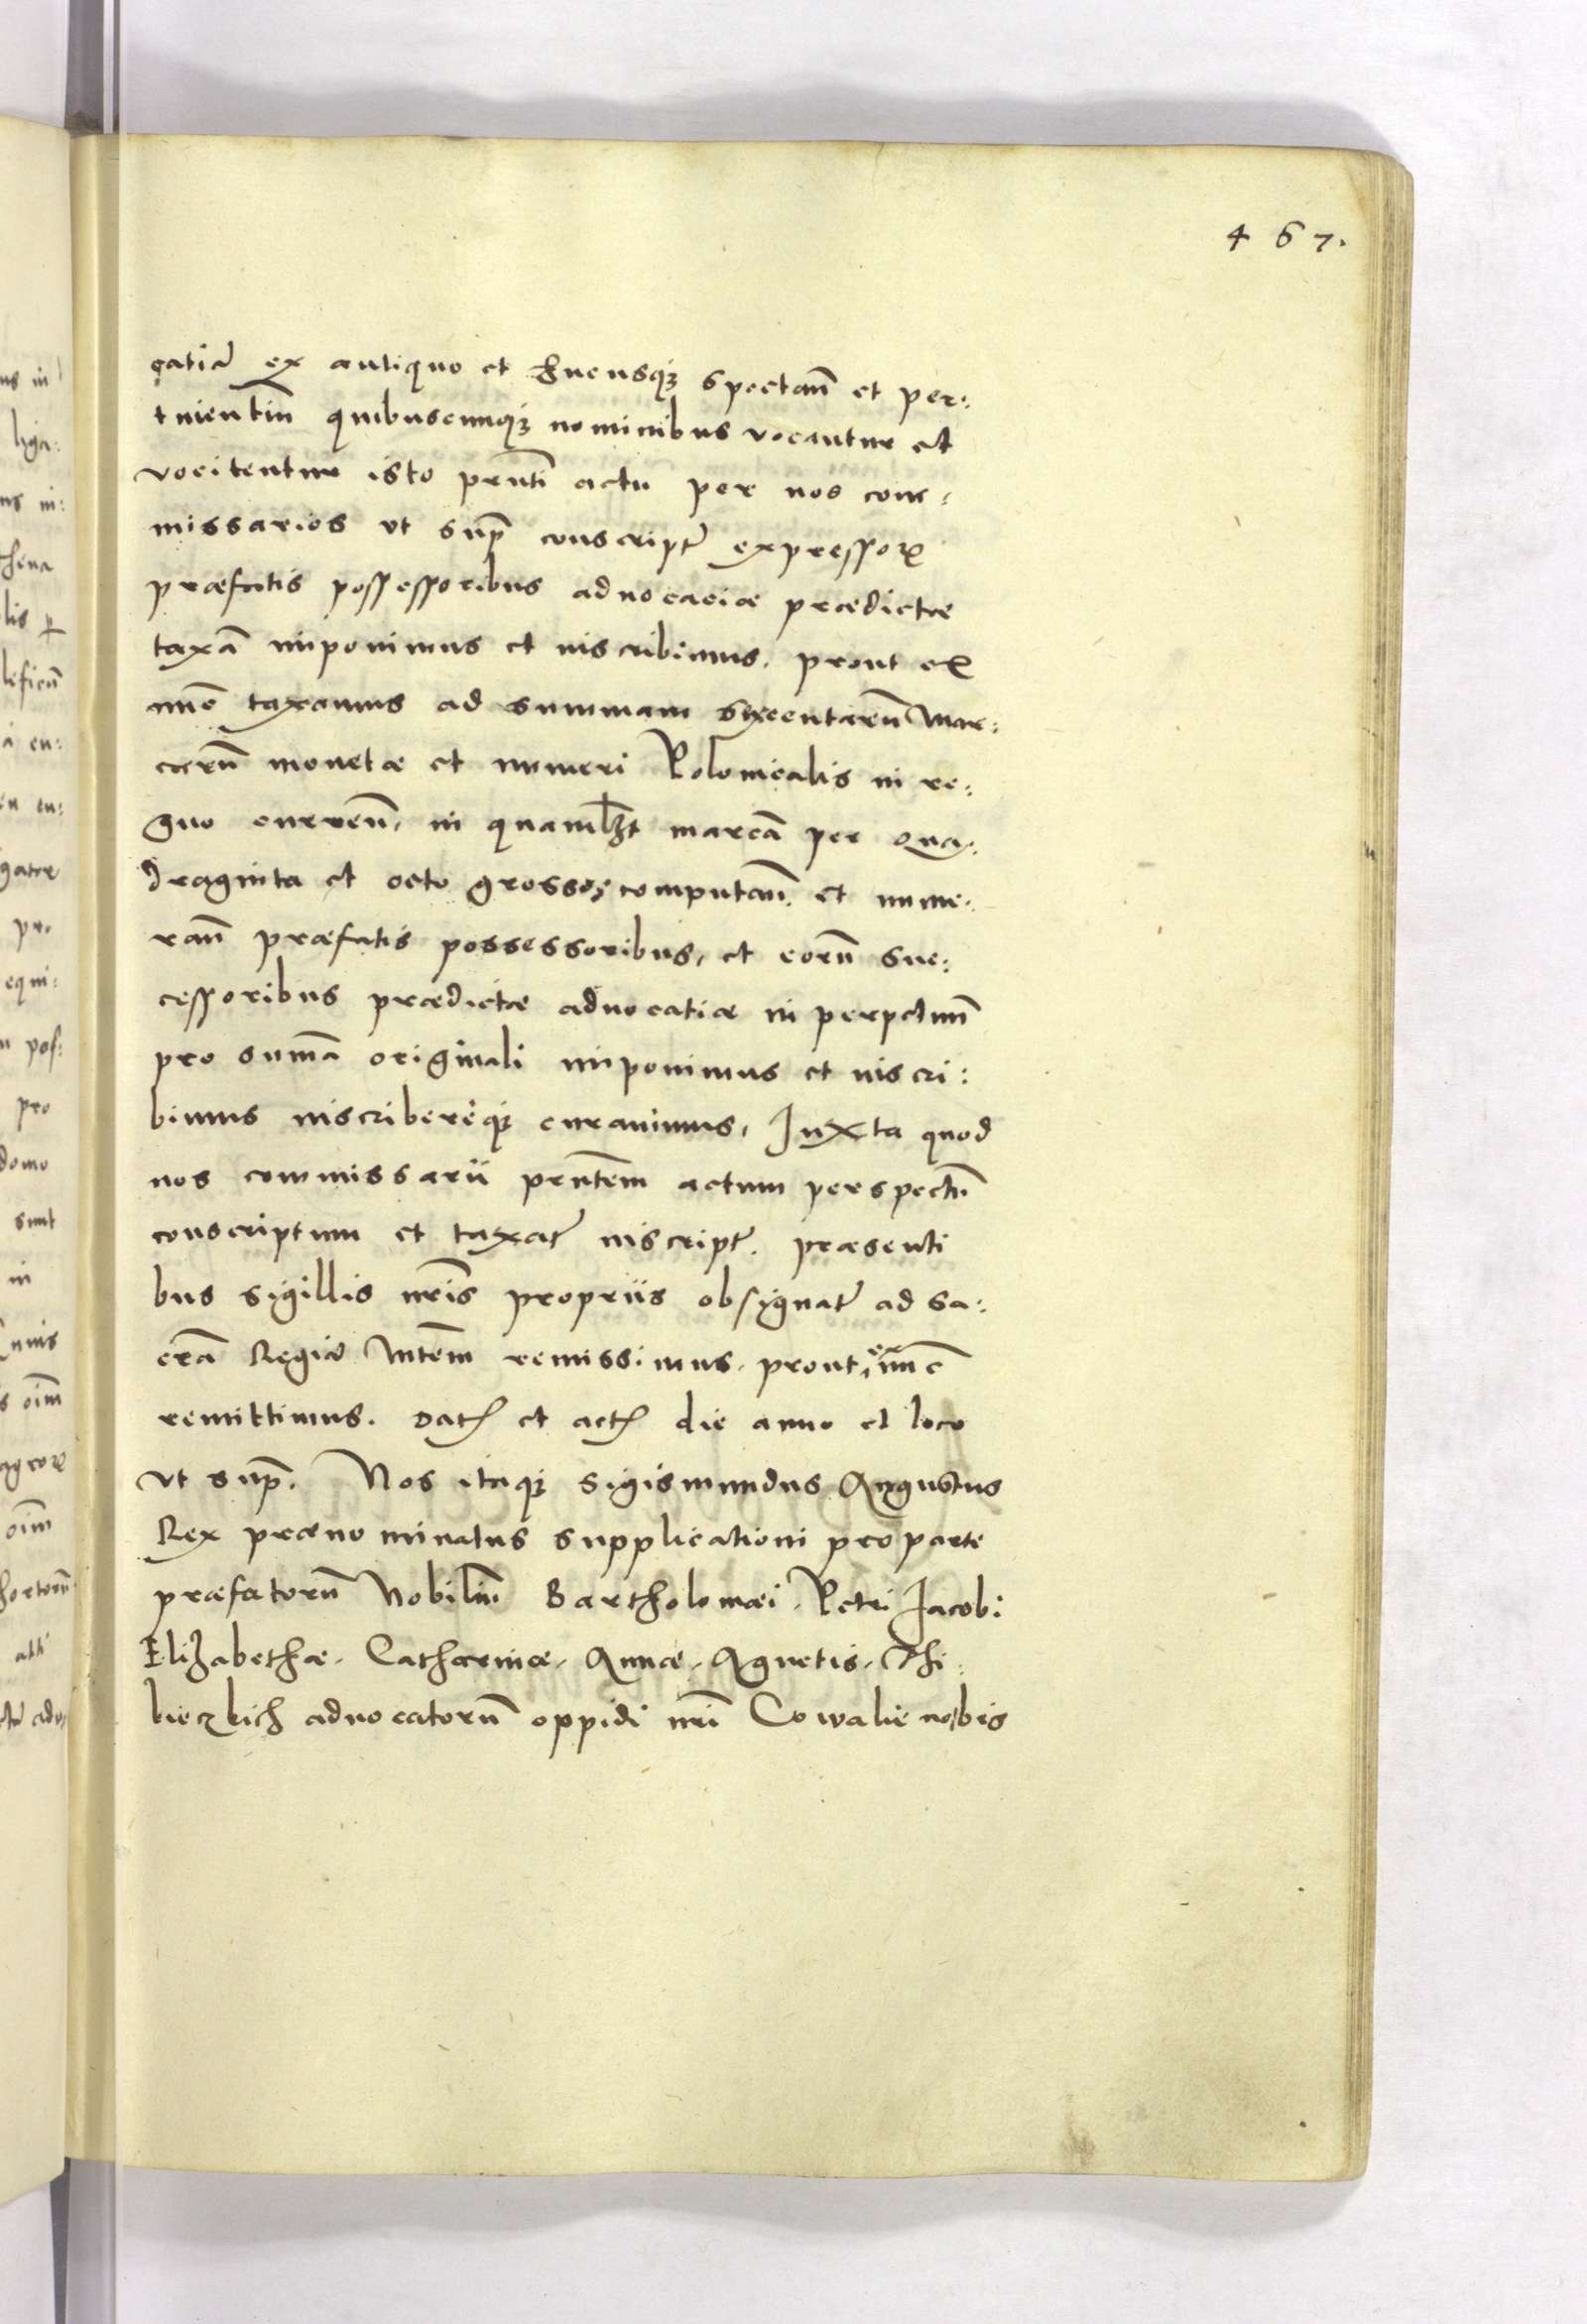 467.
catiā ex antiquo et hucusq; spectan̄ et per:
tinentiū quibuscunq; nominibus vocantur et
vocitentur isto prn̄ti actu per nos com:
missarios ut supˢ conscript̄ expressorꝫ
præfatis possessoribus aduocaciæ prædictæ
taxā imponimus et inscribimus, prout ex
nunc taxamus ad summam sexcentarū mar:
carū monetæ et numeri Polonicalis in re:
gno curren̄, in quamlȝt marcā per qua:
draginta et octo grossos computan̄ et nume:
ran̄ præfatis possessoribus, et eorū suc:
cessoribus prædictæ aduocatiæ in perpetuum
pro sum̄a originali imponimus et inscri:
bimus inscribereq; curauimus, Iuxta quod
nos commissarii prn̄tem actum perspectū
conscriptum et taxat̄ inscript̄. præsenti
bus sigillis nr̄is propriis obsignat̄ ad Sa:
crā Regiā Mtem remissimus, prout ex nunc
remittimus. Dat̄ et act̄ die anno et loco
ut supˢ. Nos itaq; Sigismundus Augustus
Rex prænominatus supplicationi pro parte
præfatorū Nobiliū Bartholomæi, Petri Jacobi
Elizabethæ, Catharinæ, Annæ, Agnetis, Chi:
liczkich aduocatorū oppidi nr̄i Cowalie nobis